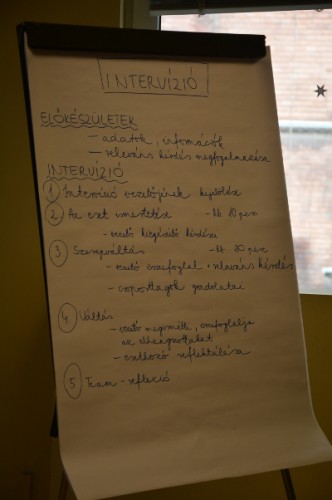 INTERVÍZIÓ
ELŐKÉSZÜLETEK
— adatok, információk
— releváns kérdés megfogalmazása
INTERVÍZIÓ
1 Intervízió vezetőjének kijelölése
2. Az eset ismertetése - kb 10 perc
- vezető kiegészítő kérdése
3 Szerepváltás - kb. 20 perc
- vezető összefoglal + releváns kérdés
- csoporttagok gondolatai
4 Váltás
- vezető megismétli, összefoglalja
az elhangzottakat
- esethozó reflektálása
5 Team - reflexió